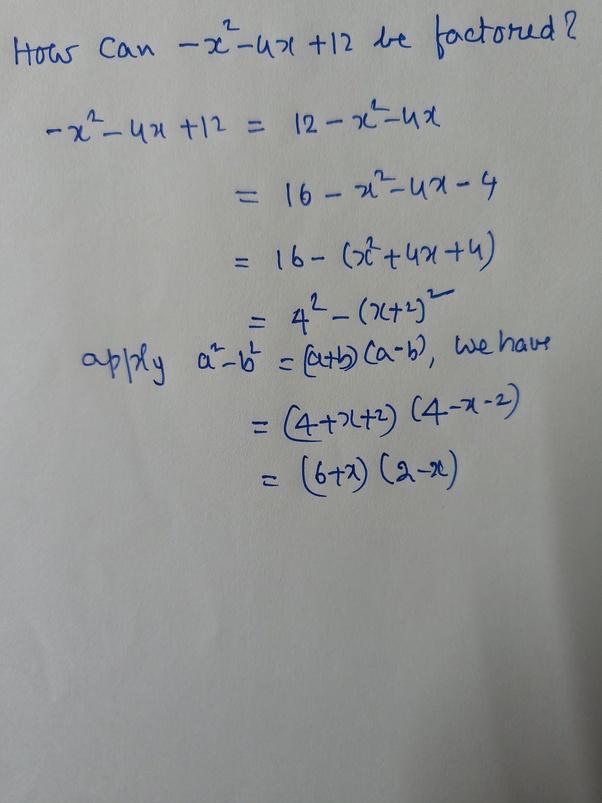 How can -x²-4x+12 be factored?
-x²-4x+12 = 12-x²-4x
= 16-x²-4x-4
= 16-(x²+4x+4)
= 4²-(x+2)²
apply a²-b² = (a+b)(a-b), we have
= (4+x+2)(4-x-2)
= (6+x)(2-x)